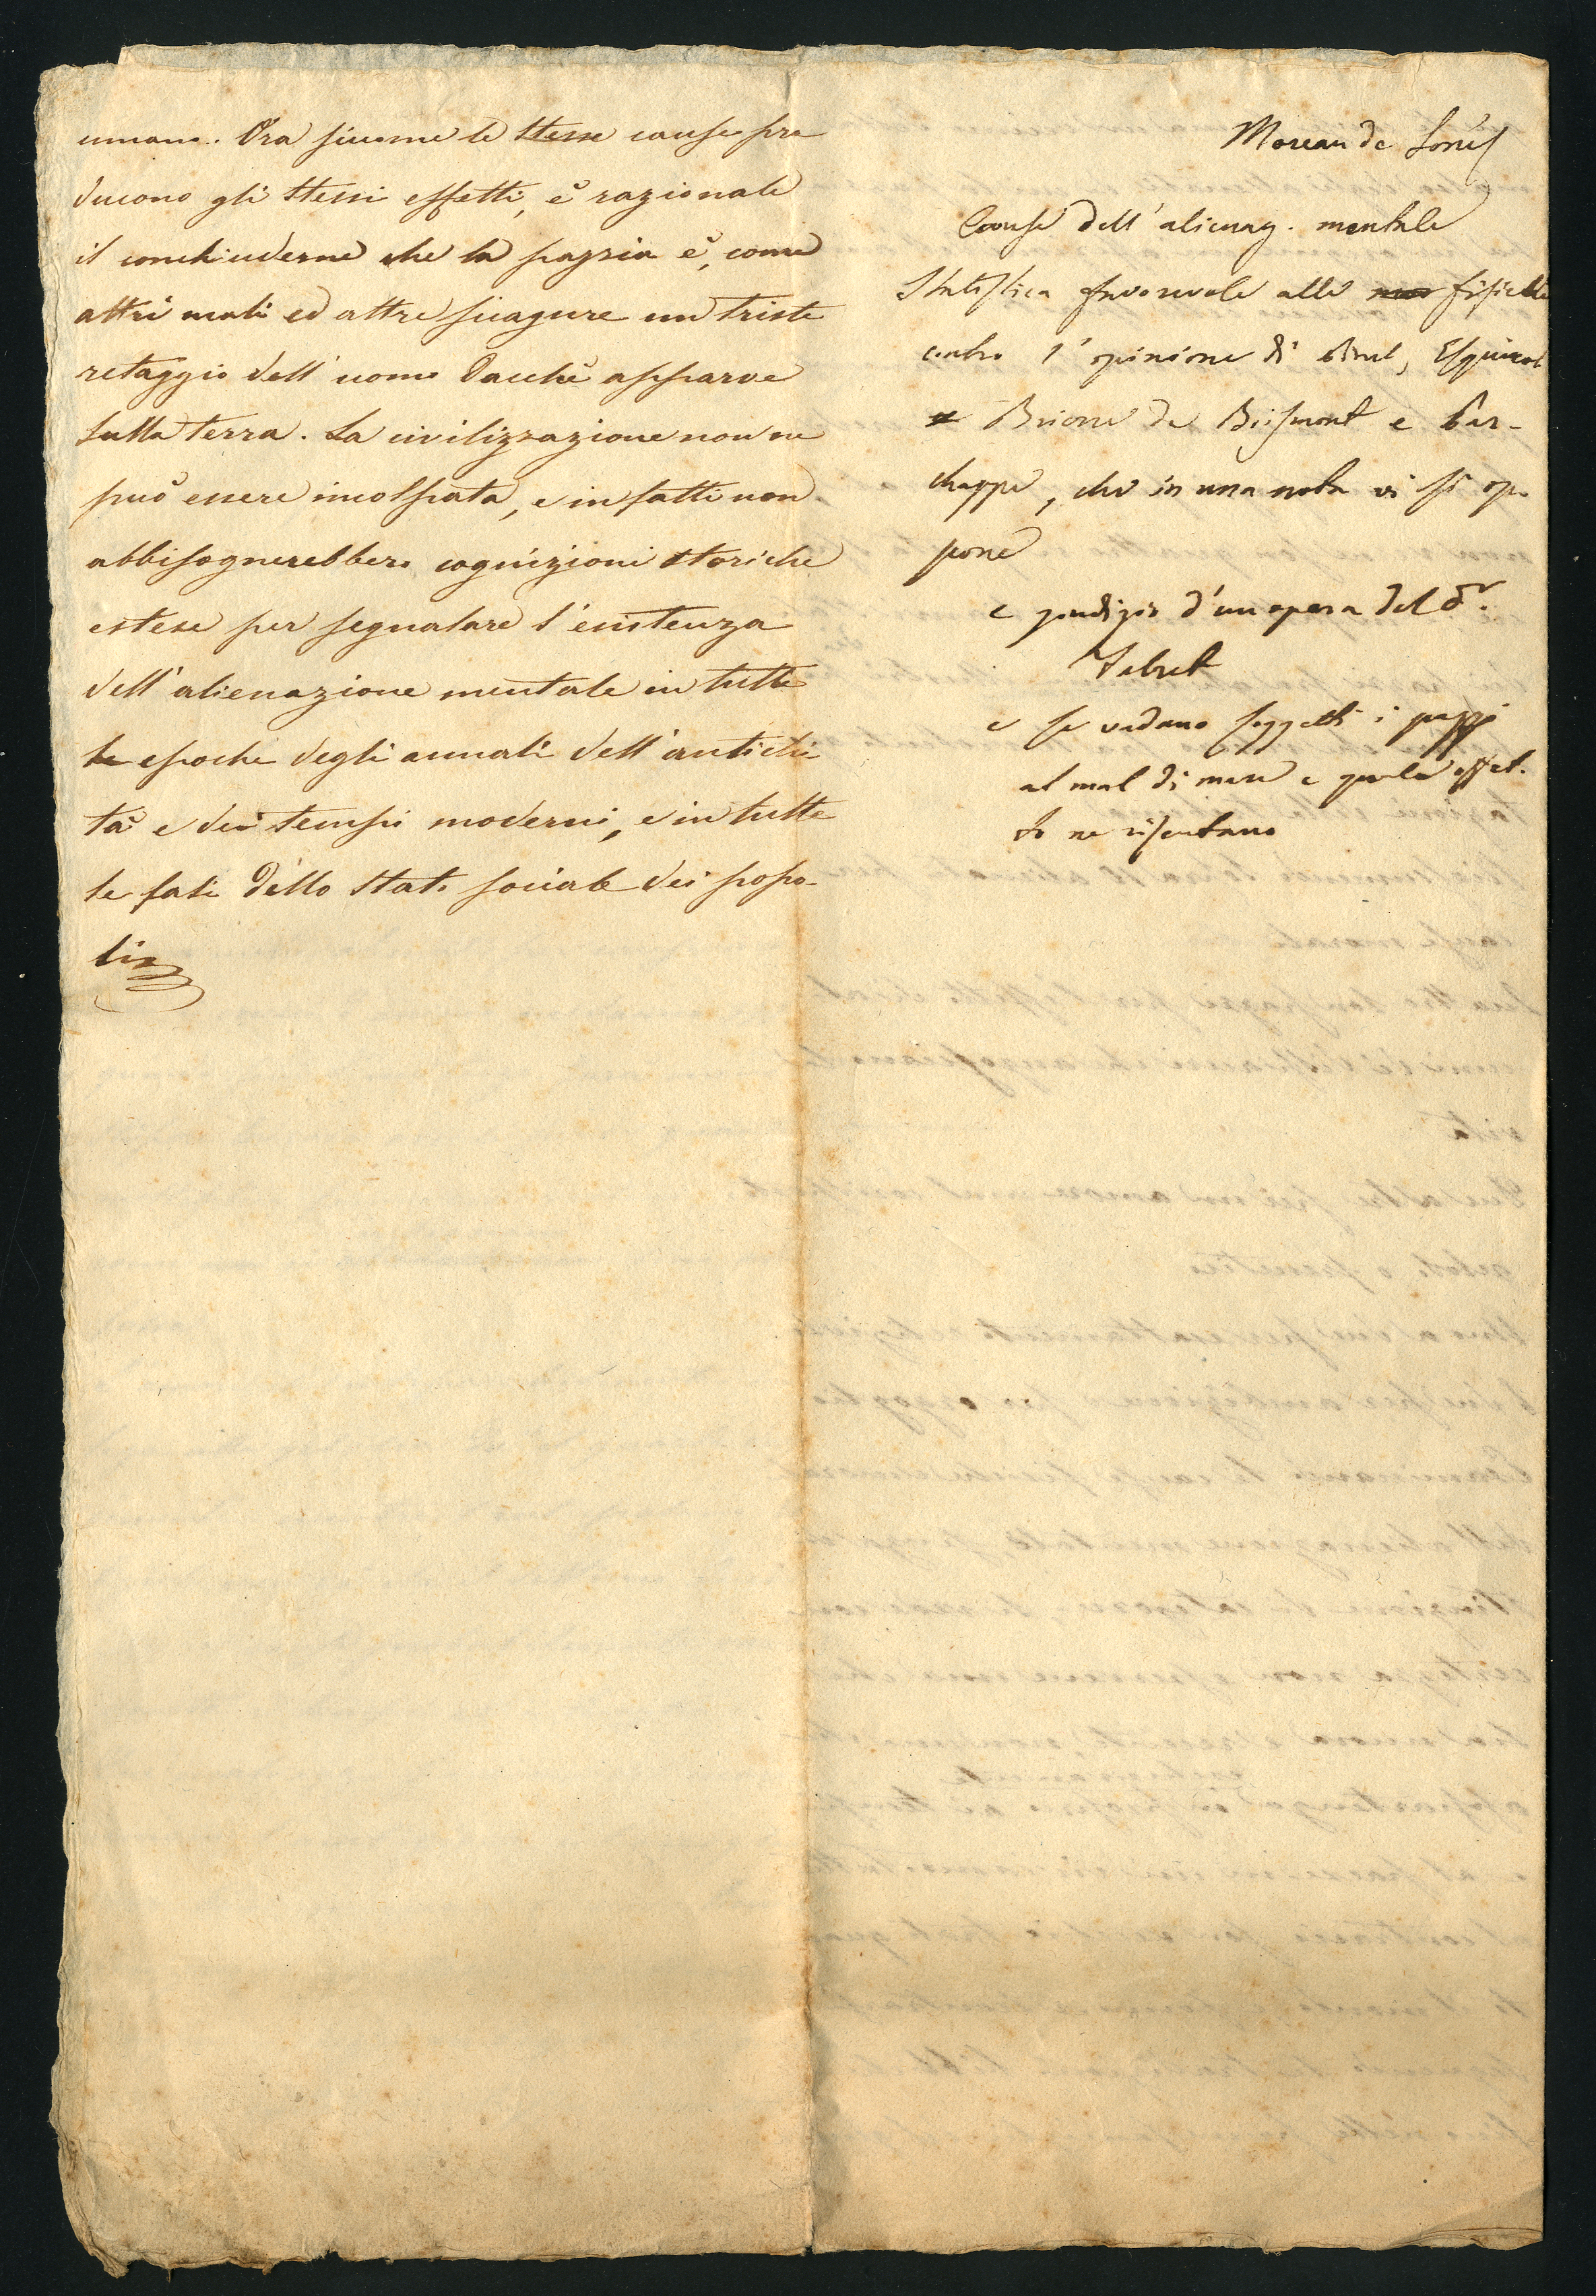 umano. Ora siccome le stesse cause pro
ducono gli stessi effetti, è razionale
il conchiuderne che la pazzia è, come
altri mali ed altre sciagure un triste
retaggio dell' uomo dacchè apparve
sulla terra. La civilizzazione non ne
può essere incolpata, e infatti non
abbisognerebbero cognizioni storiche
estese per segnalare l'esistenza
dell' alienazione mentale in tutte
le epoche degli annali dell' antichi-
tà e dei tempi moderni, e in tutte
le fasi dello stato sociale dei popo-
li
Moreau de Jonés
Cause dell' alienaz. mentale
Statistica favorevole alle fisiche
contro l' opinione di Pinel, Esquirol
Brierre de Boismont e Par-
chappe, che in una nota vi si op-
pone
e giudizio d'un opera del d.r
Falret
e se vadano soggetti i pazzi
al mal di mare e quale effet.
to ne risentano